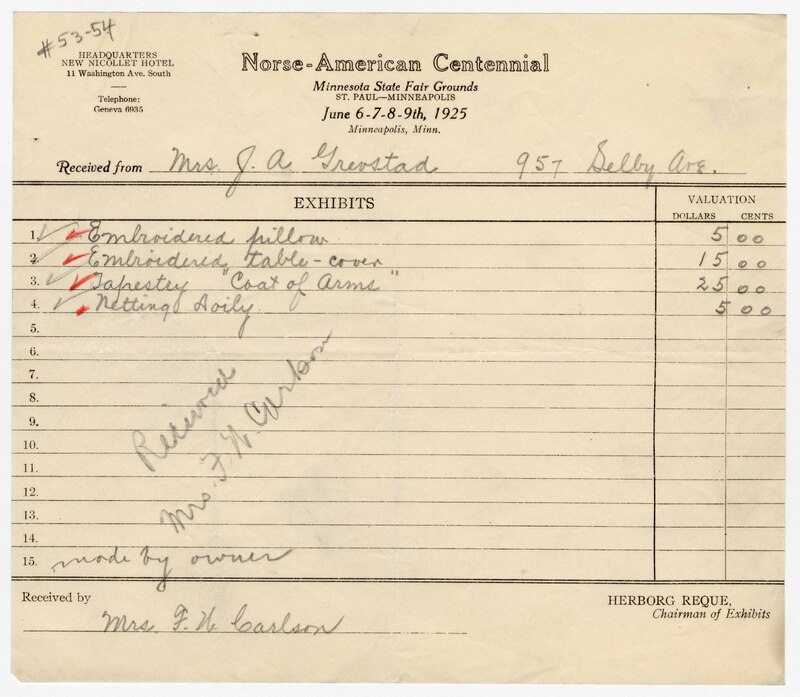 #53-54
HEADQUARTERS
NEW NICOLLET HOTEL
11 Washington Ave. South
Telephone:
Geneva 6935
Norse-American Centennial
Minnesota State Fair Grounds
ST. PAUL—MINNEAPOLIS
June 6-7-8-9th, 1925
Minneapolis, Minn.
Received from Mrs. J. A. Grevstad 957 Selby Ave.
EXHIBITS
VALUATION
DOLLARS CENTS
1. Embroidered pillow 5 00
2. Embroidered table-cover 15 00
3. Tapestry "Coat of Arms" 25 00
4. Netting Doily 5 00
5.
6.
7.
8.
9.
10.
11.
12.
13.
14.
15. made by owner
Received
Mrs. F. N. Carlson
Received by
Mrs. F. N. Carlson
HERBORG REQUE,
Chairman of Exhibits